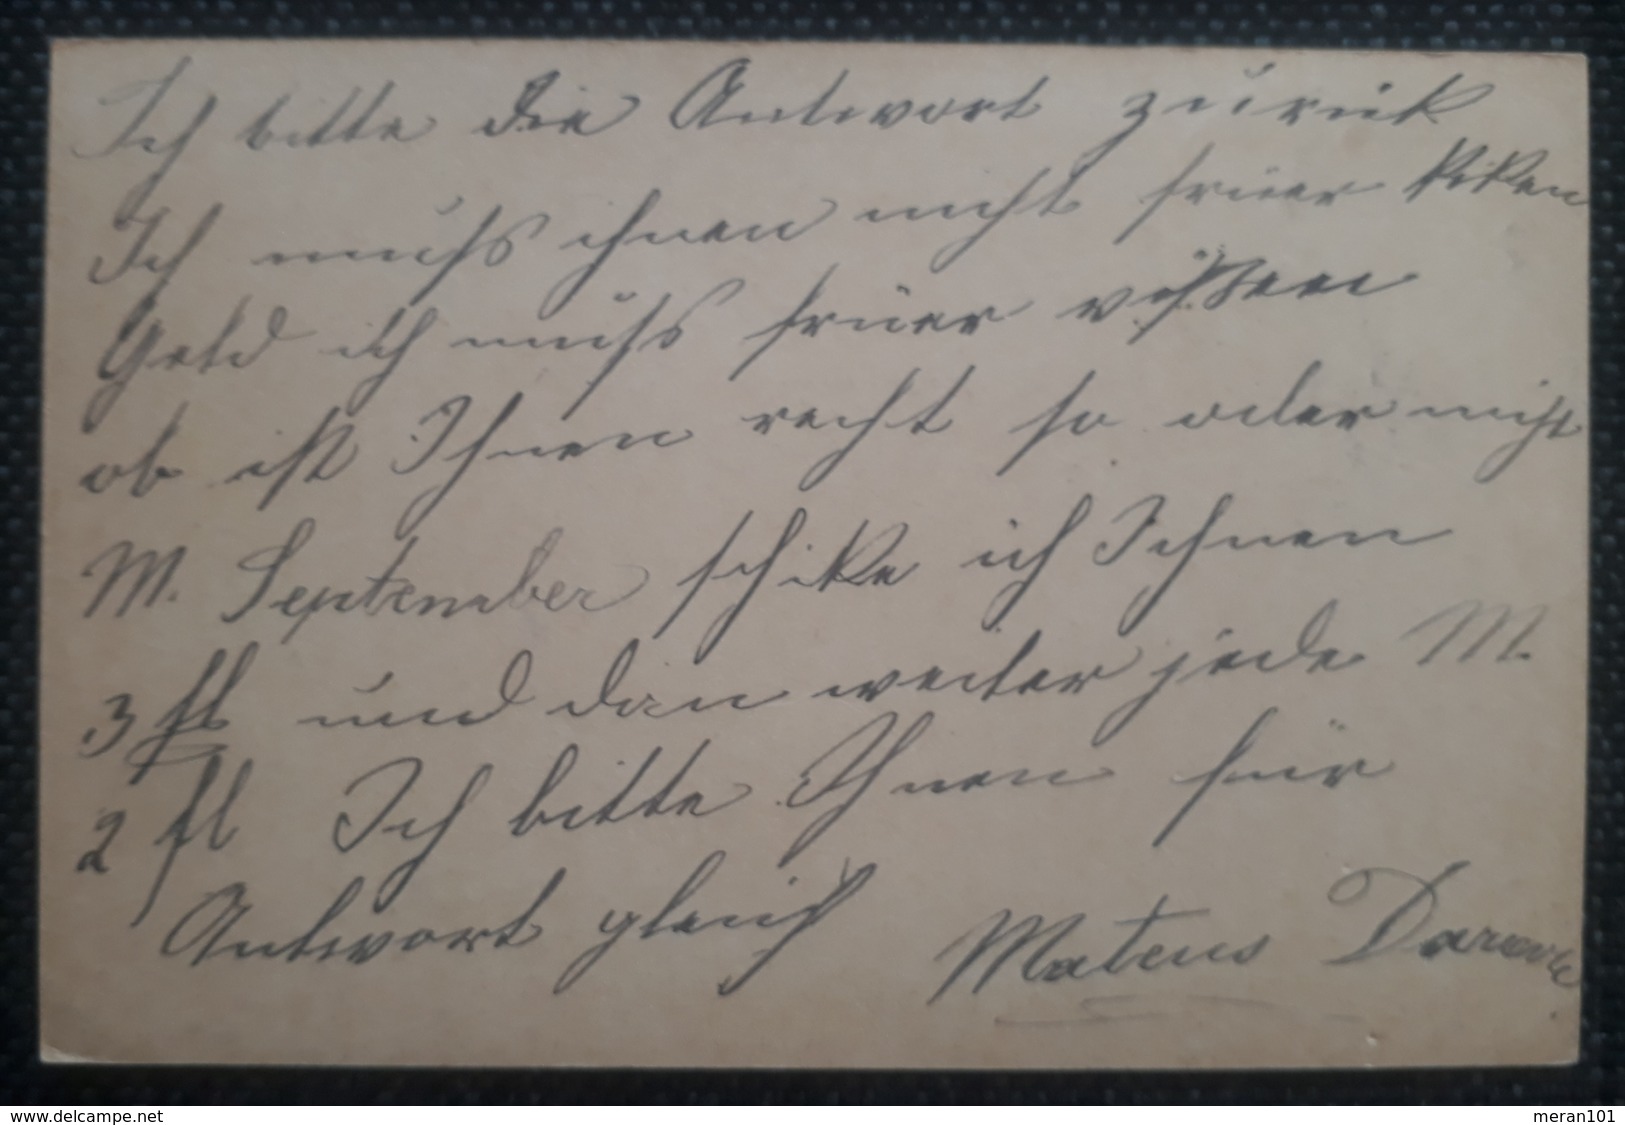 Ich bitte die Antwort zurük
Ich muss ihnen nicht früer
Geld ich muss früer vissen
ob ist Ihnen recht so oder nicht
M. September schike ich Ihnen
3 fl und dan weiter jede M.
2 fl Ich bitte Ihnen für
Antwort gleich Mateus
www.delcampe.net
meran101